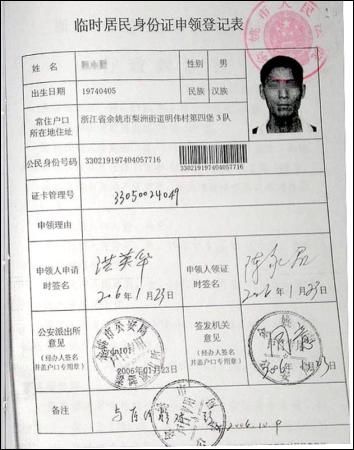 临时居民身份证申领登记表
姓名 性别 男
出生日期 19740405 民族 汉族
常住户口所在地住址 浙江省余姚市梨洲街道明伟村第四堡3队
公民身份号码 330219197404057716
330219197404057716
证卡管理号 33050024049
申领理由
申领人申请时签名 洪英华 2006年1月23日
申领人领证时签名 2006年1月23日
公安派出所意见
(经办人签名并盖户口专用章)
2006年01月23日
签发机关意见
(经办人签名并盖户口专用章)
备注
2006.10.9